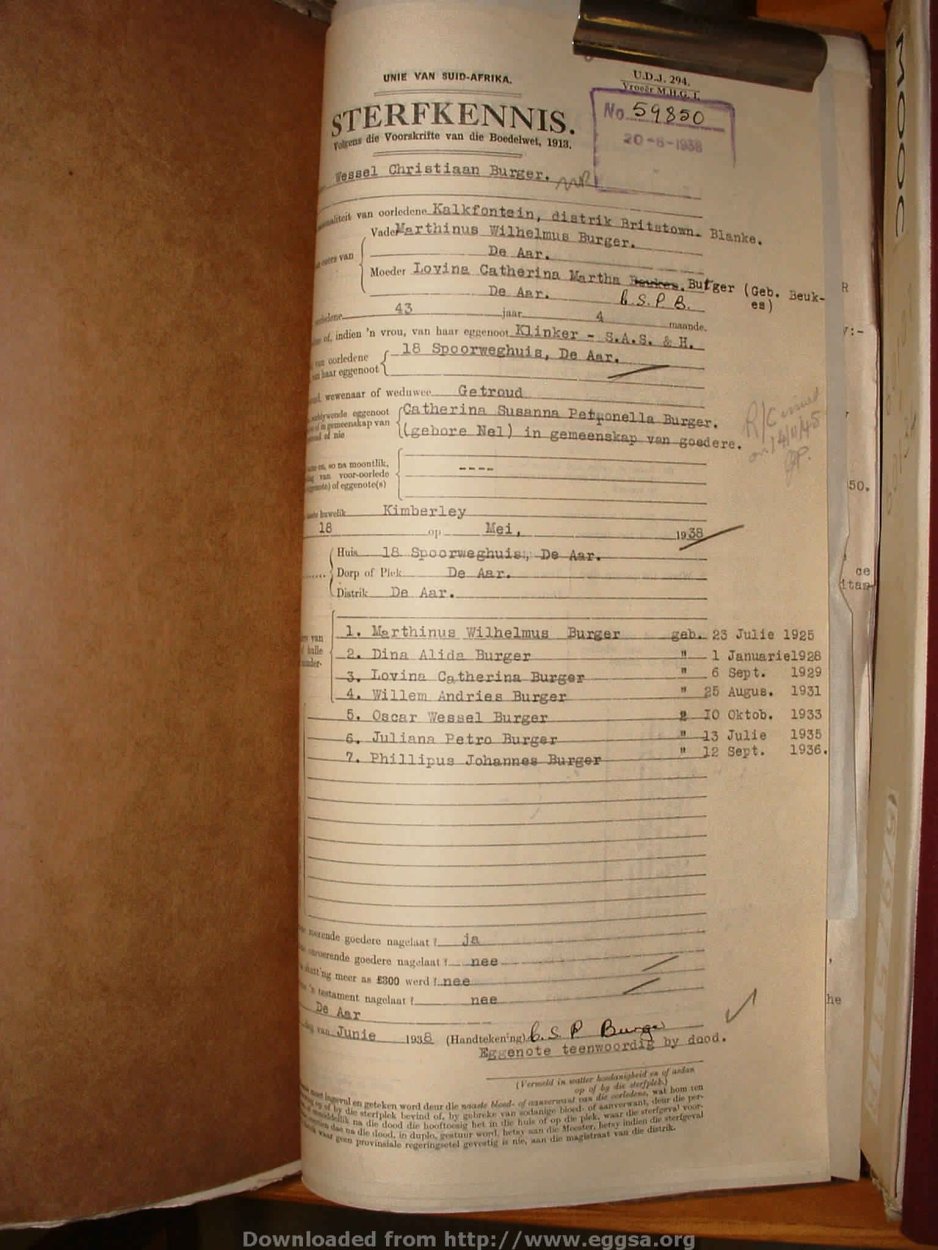 UNIE VAN SUID-AFRIKA.
U.D.J. 294.
Vroeër M.H.G. I.
STERFKENNIS.
Volgens die Voorskrifte van die Boedelwet, 1913.
No. 59850
20-6-1938
Wessel Christiaan Burger.
van oorledene Kalkfontein, distrik Britstown. Blanke.
Vader Marthinus Wilhelmus Burger.
van
De Aar.
Moeder Lovina Catherina Martha Beukes. Burger (Geb. Beuk-
es)
De Aar. C. S. P. B.
43 jaar 4 maande.
of, indien 'n vrou, van haar eggenoot Klinker - S.A.S. & H.
van oorledene
van haar eggenoot
18 Spoorweghuis, De Aar.
wewenaar of weduwee Getroud
eggenoot
gemeenskap van
of nie
Catherina Susanna Petronella Burger.
(gebore Nel) in gemeenskap van goedere.
so na moontlik,
van voor-oorlede
of eggenote(s)
----
huwelik Kimberley
18 op Mei, 1938
Huis 18 Spoorweghuis, De Aar.
Dorp of Plek De Aar.
Distrik De Aar.
van
1. Marthinus Wilhelmus Burger geb. 23 Julie 1925
2. Dina Alida Burger " 1 Januarie1928
3. Lovina Catherina Burger " 6 Sept. 1929
4. Willem Andries Burger " 25 Augus. 1931
5. Oscar Wessel Burger " 10 Oktob. 1933
6. Juliana Petro Burger " 13 Julie 1935
7. Phillipus Johannes Burger " 12 Sept. 1936.
goedere nagelaat? ja
goedere nagelaat? nee
meer as £300 werd? nee
testament nagelaat? nee
De Aar
van Junie 1938 (Handtekening) C. S. P Burger
Eggenote teenwoordig by dood.
(Vermeld in watter hoedanigheid en of aldan
op of by die sterfplek.)
en geteken word deur die naaste bloed- of aanverwant van die oorledene, wat hom ten
of by die sterfplek bevind of, by gebreke van sodanige bloed- of aanverwant, deur die per-
na die dood die hooftoesig het in die huis of op die plek, waar die sterfgeval voor-
dae na die dood, in duplo, gestuur word, hetsy aan die Meester, hetsy indien die sterfgeval
waar geen provinsiale regeringsetel gevestig is nie, aan die magistraat van die distrik.
MOOC
50.
ce
he
Downloaded from http://www.eggsa.org